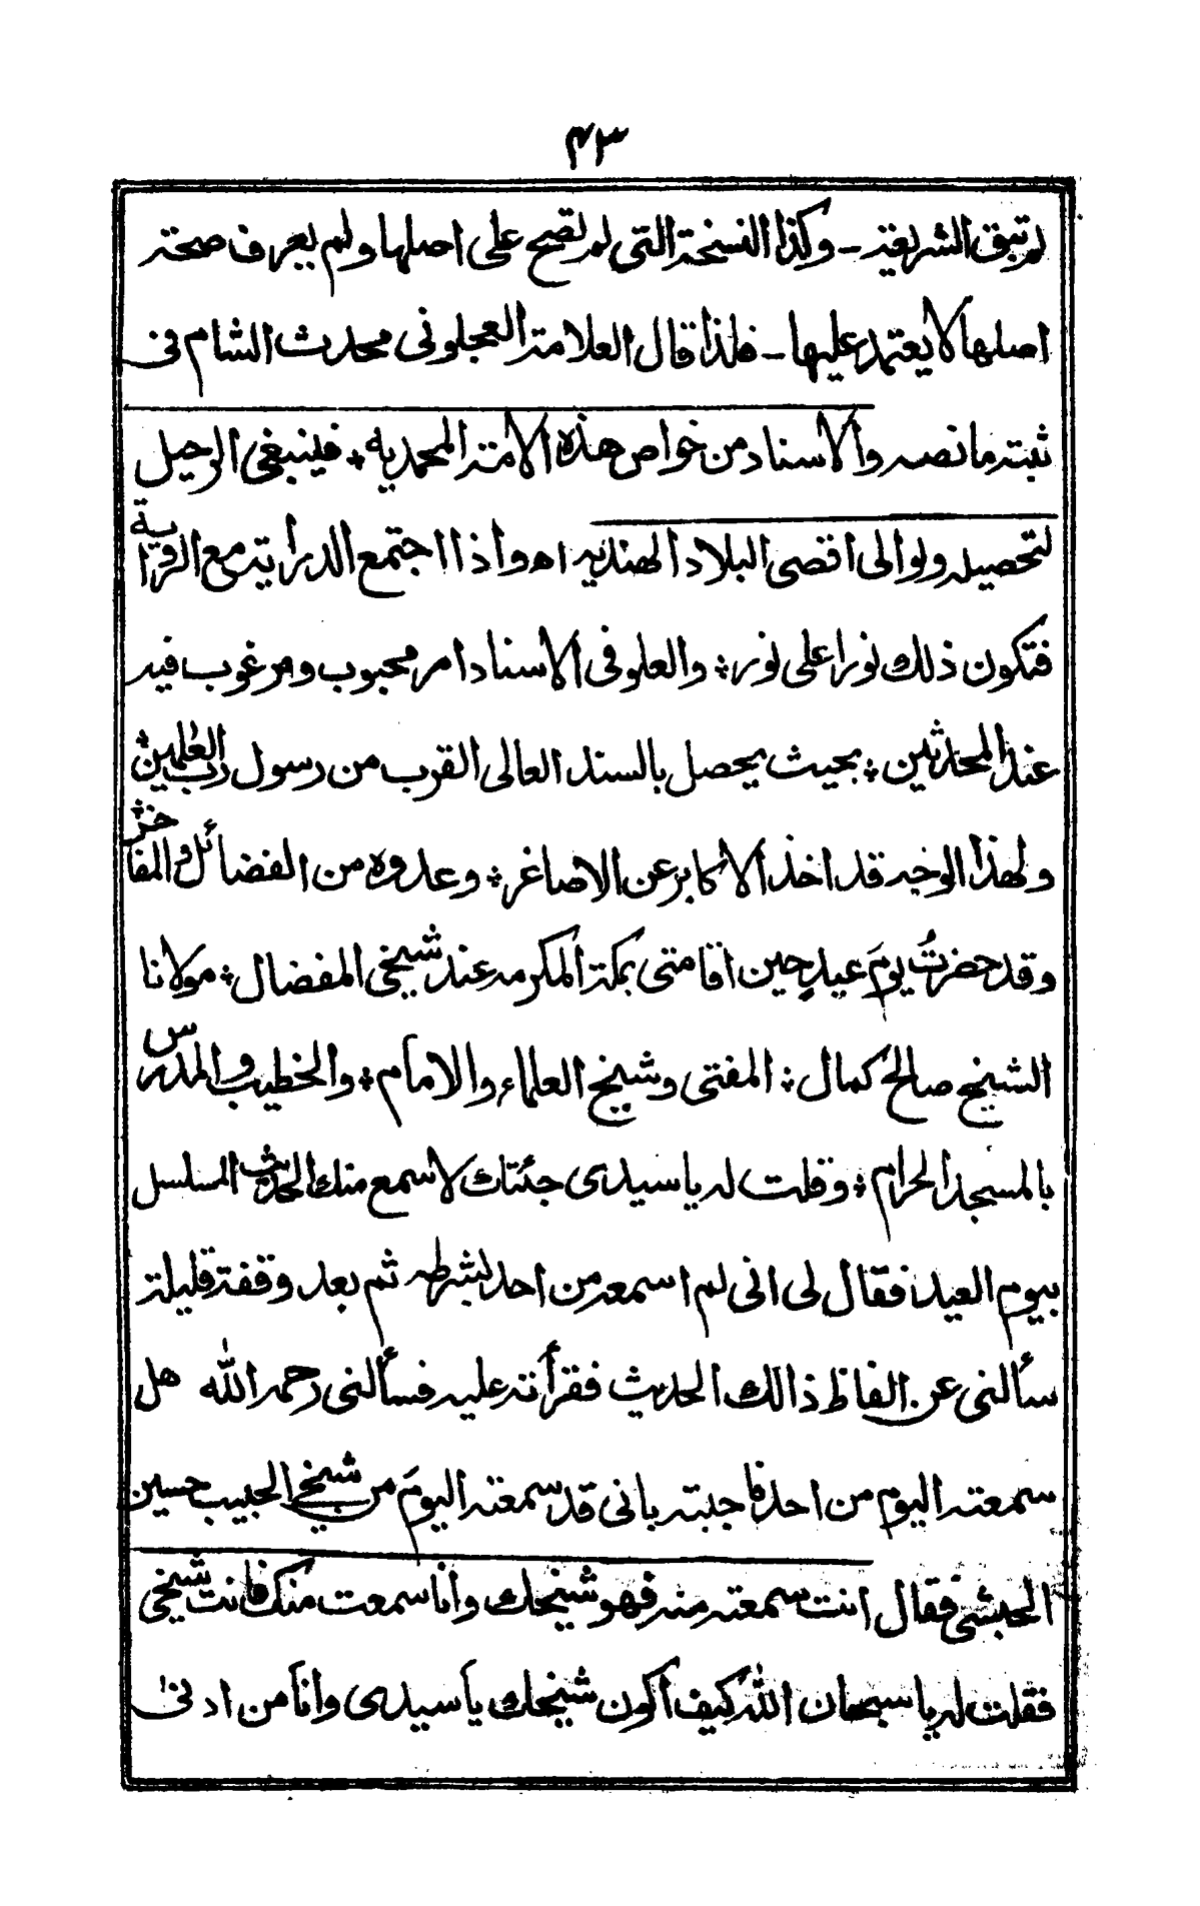 ٤٣
لم تبق الشريعة ـ وكذا النسخة التى لم تصح على اصلها ولم يعرف صحة
اصلها لا يعتمد عليها ـ فلذا قال العلامة العجلونى محدث الشام فى
ثبته ما نصه والاسناد من خواص هذه الامة المحمديه ؞ فينبغى الرحيل
لتحصيله ولو الى اقصى البلاد الهنديه اه واذا اجتمع الدراية مع القراية
فتكون ذلك نورا على نور ؞ والعلو فى الاسناد امر محبوب ومرغوب فيه
عند المحدثين ؞ بحيث يحصل بالسند العالى القرب من رسول رب العلمين ؞
ولهذا الوجه قد اخذ الاكابر عن الاصاغر ؞ وعدوه من الفضائل والمفاخر ؞
وقد حضرتُ يومَ عيدٍ حين اقامتى بمكة المكرمه عند شيخى المفضال ؞ مولانا
الشيخ صالح كمال ؞ المفتى وشيخ العلماء والامام ؞ والخطيب والمدرس
بالمسجد الحرام ؞ وقلت له يا سيدى جئتك لاسمع منك الحديث المسلسل
بيوم العيد فقال لى انى لم اسمعه من احد بشرطه ثم بعد وقفة قليلة
سألنى عن الفاظ ذالك الحديث فقرأته عليه فسألنى رحمه الله هل
سمعته اليوم من احد فاجبته بانى قد سمعته اليومَ من شيخى الحبيب حسين
الحبشى فقال انت سمعته منه فهو شيخك وانا سمعت منك فانت شيخى
فقلت له يا سبحان الله كيف اكون شيخك يا سيدى وانا من ادنى